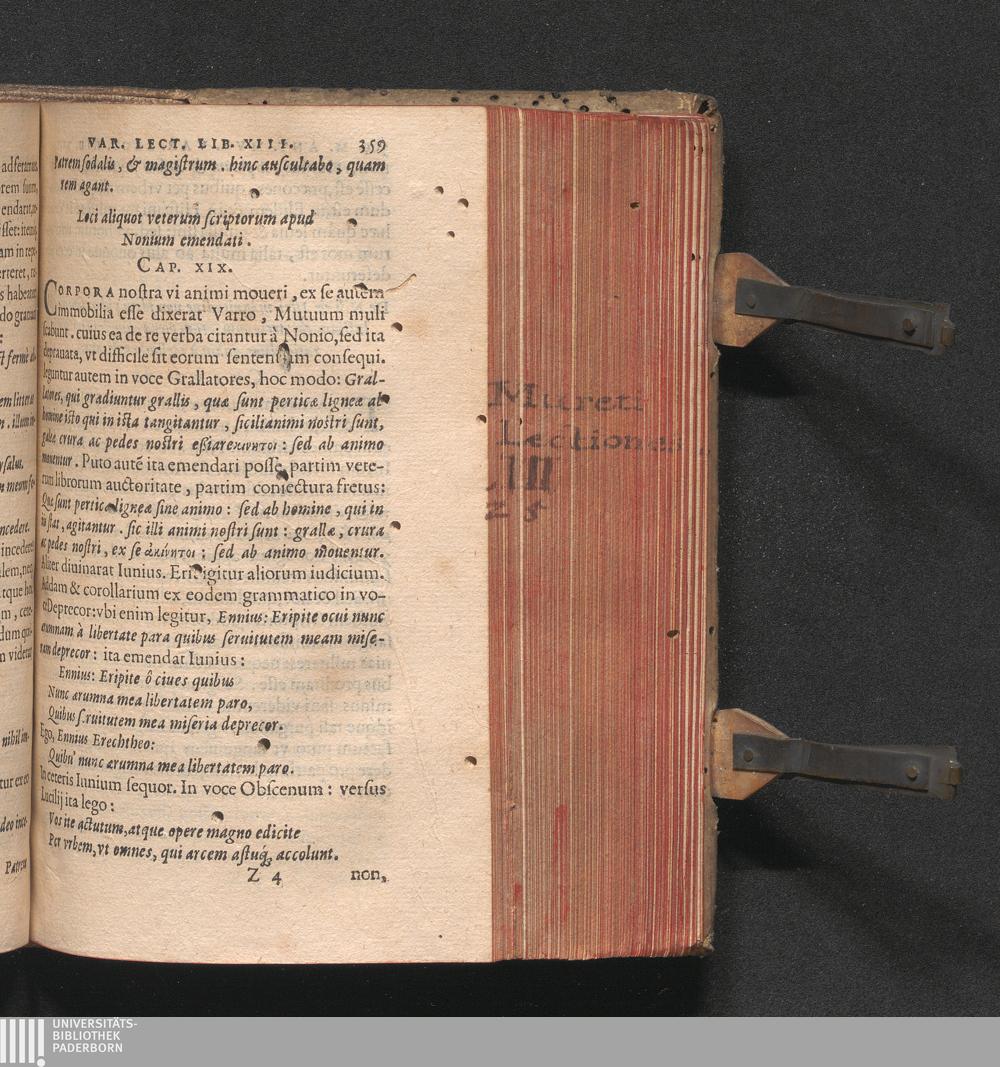 VAR. LECT. LIB. XIII. 359
Patrem sodalis, & magistrum. hinc ausculcabo, quam
rem agant.
Loci aliquot veterum scriptorum apud
Nonium emendati.
CAP. XIX.
CORPORA nostra vi animi moueri, ex se autem
immobilia esse dixerat Varro, Mutuum muli
scabunt. cuius ea de re verba citantur à Nonio, sed ita
deprauata, vt difficile sit eorum sententiam consequi.
leguntur autem in voce Grallatores, hoc modo: Gral-
latores, qui gradiuntur grallis, quæ sunt perticæ ligneæ ab
homine isto qui in ista tangitantur, sicilianimi nostri sunt,
galea crura ac pedes nostri eßiareκινητοι: sed ab animo
mouentur. Puto autē ita emendari posse, partim vete-
rum librorum auctoritate, partim coniectura fretus:
Quæ sunt perticæ ligneæ sine animo: sed ab homine, qui in
iis stat, agitantur. sic illi animi nostri sunt: grallæ, crura
ac pedes nostri, ex se ἀκίνητοι: sed ab animo mouentur.
Aliter diuinarat Iunius. Erit igitur aliorum iudicium.
Addam & corollarium ex eodem grammatico in vo-
ce Deprecor: vbi enim legitur, Ennius: Eripite ocui nunc
ærumnam à libertate para quibus seruitutem meam mise-
ram deprecor: ita emendat Iunius:
Ennius: Eripite ô ciues quibus
Nunc ærumna mea libertatem paro,
Quibus s.ruitutem mea miseria deprecor.
Ego, Ennius Erechtheo:
Quibu' nunc ærumna mea libertatem paro.
In ceteris Iunium sequor. In voce Obscenum: versus
Lucilij ita lego:
Vos ite actutum, atque opere magno edicite
Per vrbem, vt omnes, qui arcem astuq́; accolunt.
Z 4 non,
adferamus,
orem suum,
am in repe-
do gratiam
ysalus.
ncedere.
incedere
nihil in-
deo ince-
Patrem
Mureti
Lectiones
LIII
25
UNIVERSITÄTS-
BIBLIOTHEK
PADERBORN